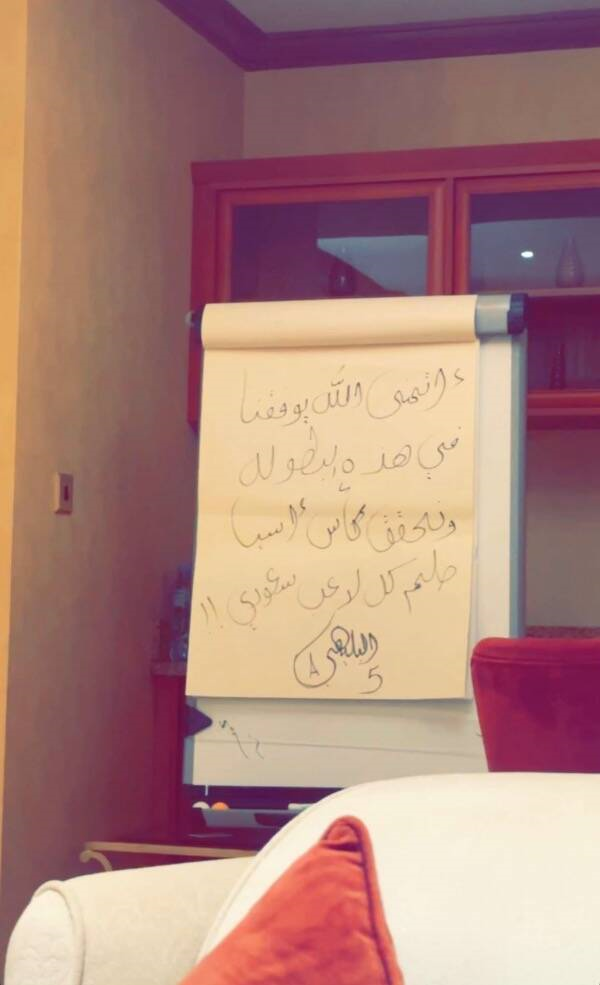 اتمنى الله يوفقنا
في هذه البطوله
ونحقق كأس اسيا
حلم كل لاعب سعودي !!
البليهي
5